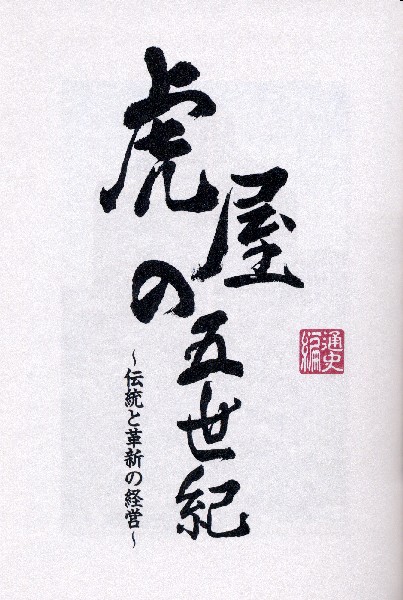 虎屋の五世紀
～伝統と革新の経営～
通史編